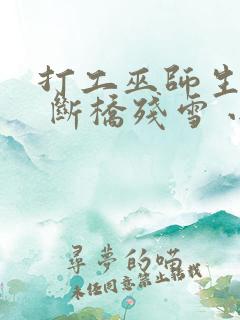 打工巫師生
斷橋殘雪、
尋夢的喵
未经同意禁止转载